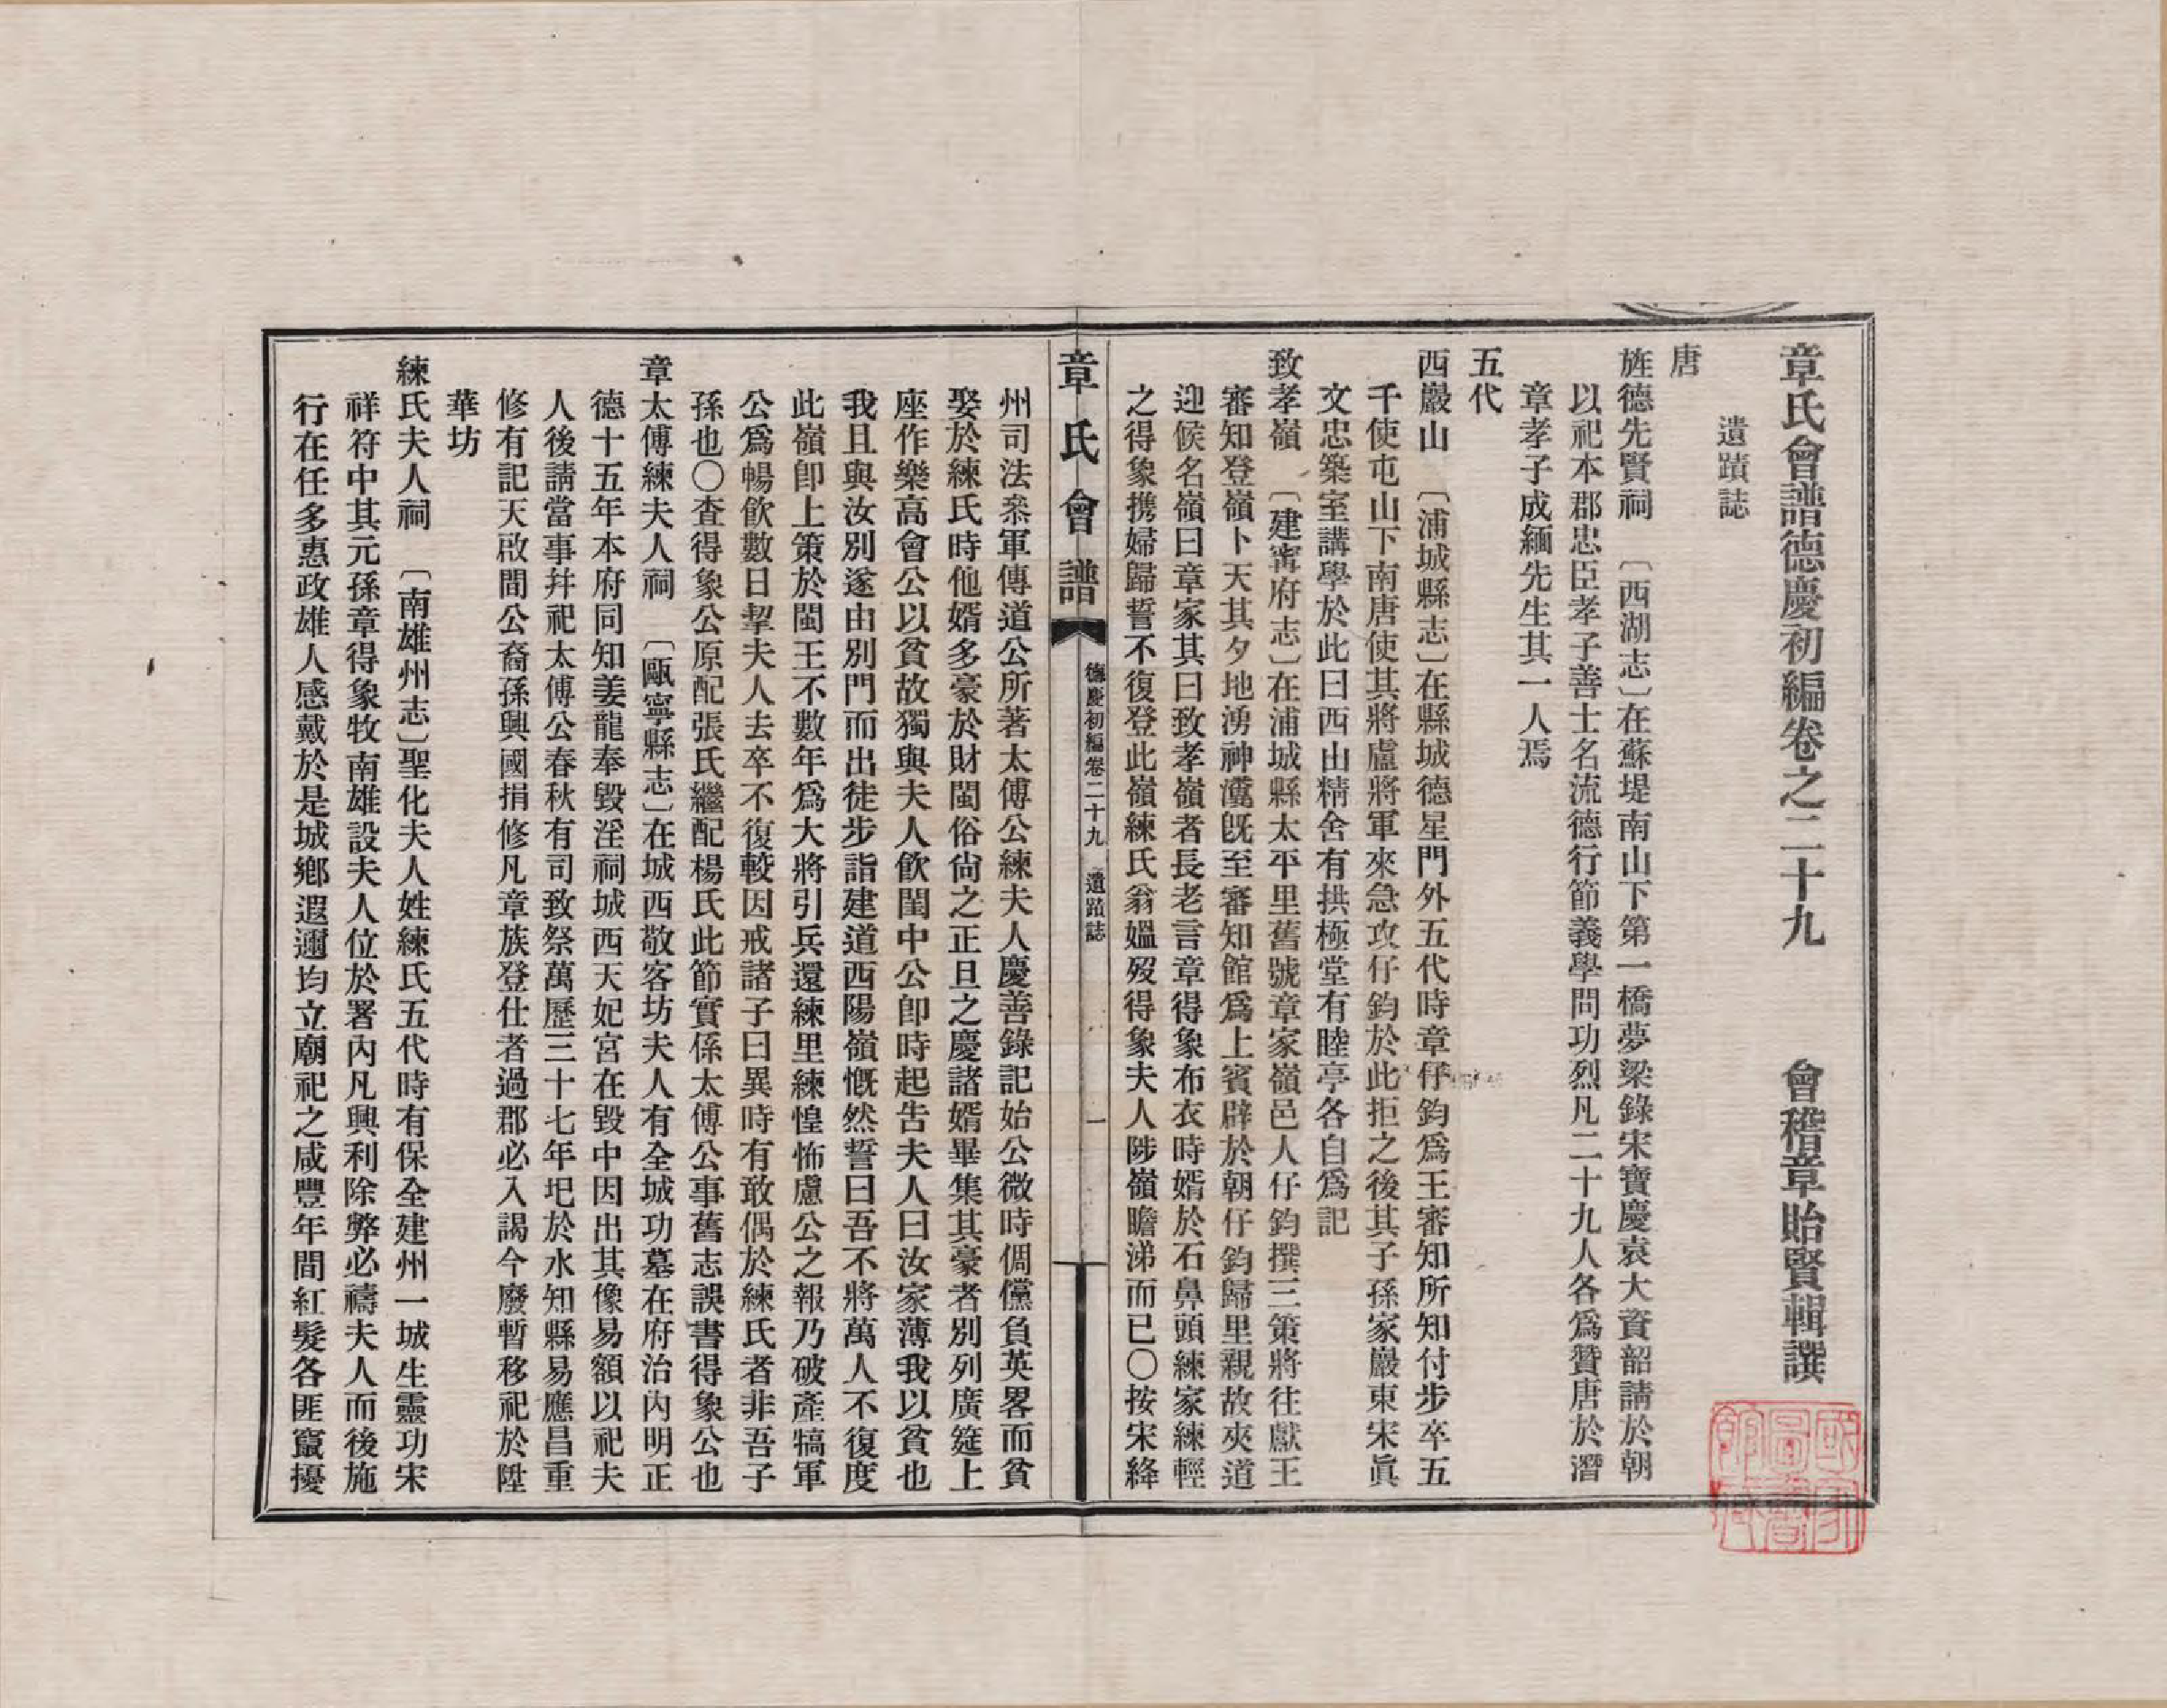 章氏會譜德慶初編卷之二十九 會稽章貽賢輯譔
遺蹟誌
唐
旌德先賢祠 〔西湖志〕在蘇堤南山下第一橋夢梁錄宋寶慶袁大資韶請於朝
以祀本郡忠臣孝子善士名流德行節義學問功烈凡二十九人各爲贊唐於潛
章孝子成緬先生其一人焉
五代
西巖山 〔浦城縣志〕在縣城德星門外五代時章仔鈞爲王審知所知付步卒五
千使屯山下南唐使其將盧將軍來急攻仔鈞於此拒之後其子孫家巖東宋眞
文忠築室講學於此曰西山精舍有拱極堂有睦亭各自爲記
致孝嶺 〔建寗府志〕在浦城縣太平里舊號章家嶺邑人仔鈞撰三策將往獻王
審知登嶺卜天其夕地湧神灋旣至審知館爲上賓辟於朝仔鈞歸里親故夾道
迎候名嶺曰章家其曰致孝嶺者長老言章得象布衣時婿於石鼻頭練家練輕
之得象携婦歸誓不復登此嶺練氏翁媼歿得象夫人陟嶺瞻涕而已〇按宋絳
章氏會譜 德慶初編卷二十九 遺蹟誌 一
州司法叅軍傳道公所著太傅公練夫人慶善錄記始公微時倜儻負英畧而貧
娶於練氏時他婿多豪於財閩俗尙之正旦之慶諸婿畢集其豪者別列廣筵上
座作樂高會公以貧故獨與夫人飮閨中公卽時起告夫人曰汝家薄我以貧也
我且與汝別遂由別門而出徒步詣建道西陽嶺慨然誓曰吾不將萬人不復度
此嶺卽上策於閩王不數年爲大將引兵還練里練惶怖慮公之報乃破產犒軍
公爲暢飮數日挈夫人去卒不復較因戒諸子曰異時有敢偶於練氏者非吾子
孫也〇查得象公原配張氏繼配楊氏此節實係太傅公事舊志誤書得象公也
章太傅練夫人祠 〔甌寧縣志〕在城西敬客坊夫人有全城功墓在府治內明正
德十五年本府同知姜龍奉毀淫祠城西天妃宮在毀中因出其像易額以祀夫
人後請當事幷祀太傅公春秋有司致祭萬歷三十七年圯於水知縣易應昌重
修有記天啟間公裔孫興國捐修凡章族登仕者過郡必入謁今廢暫移祀於陞
華坊
練氏夫人祠 〔南雄州志〕聖化夫人姓練氏五代時有保全建州一城生靈功宋
祥符中其元孫章得象牧南雄設夫人位於署內凡興利除弊必禱夫人而後施
行在任多惠政雄人感戴於是城鄉遐邇均立廟祀之咸豐年間紅髮各匪竄擾
國家圖書館藏